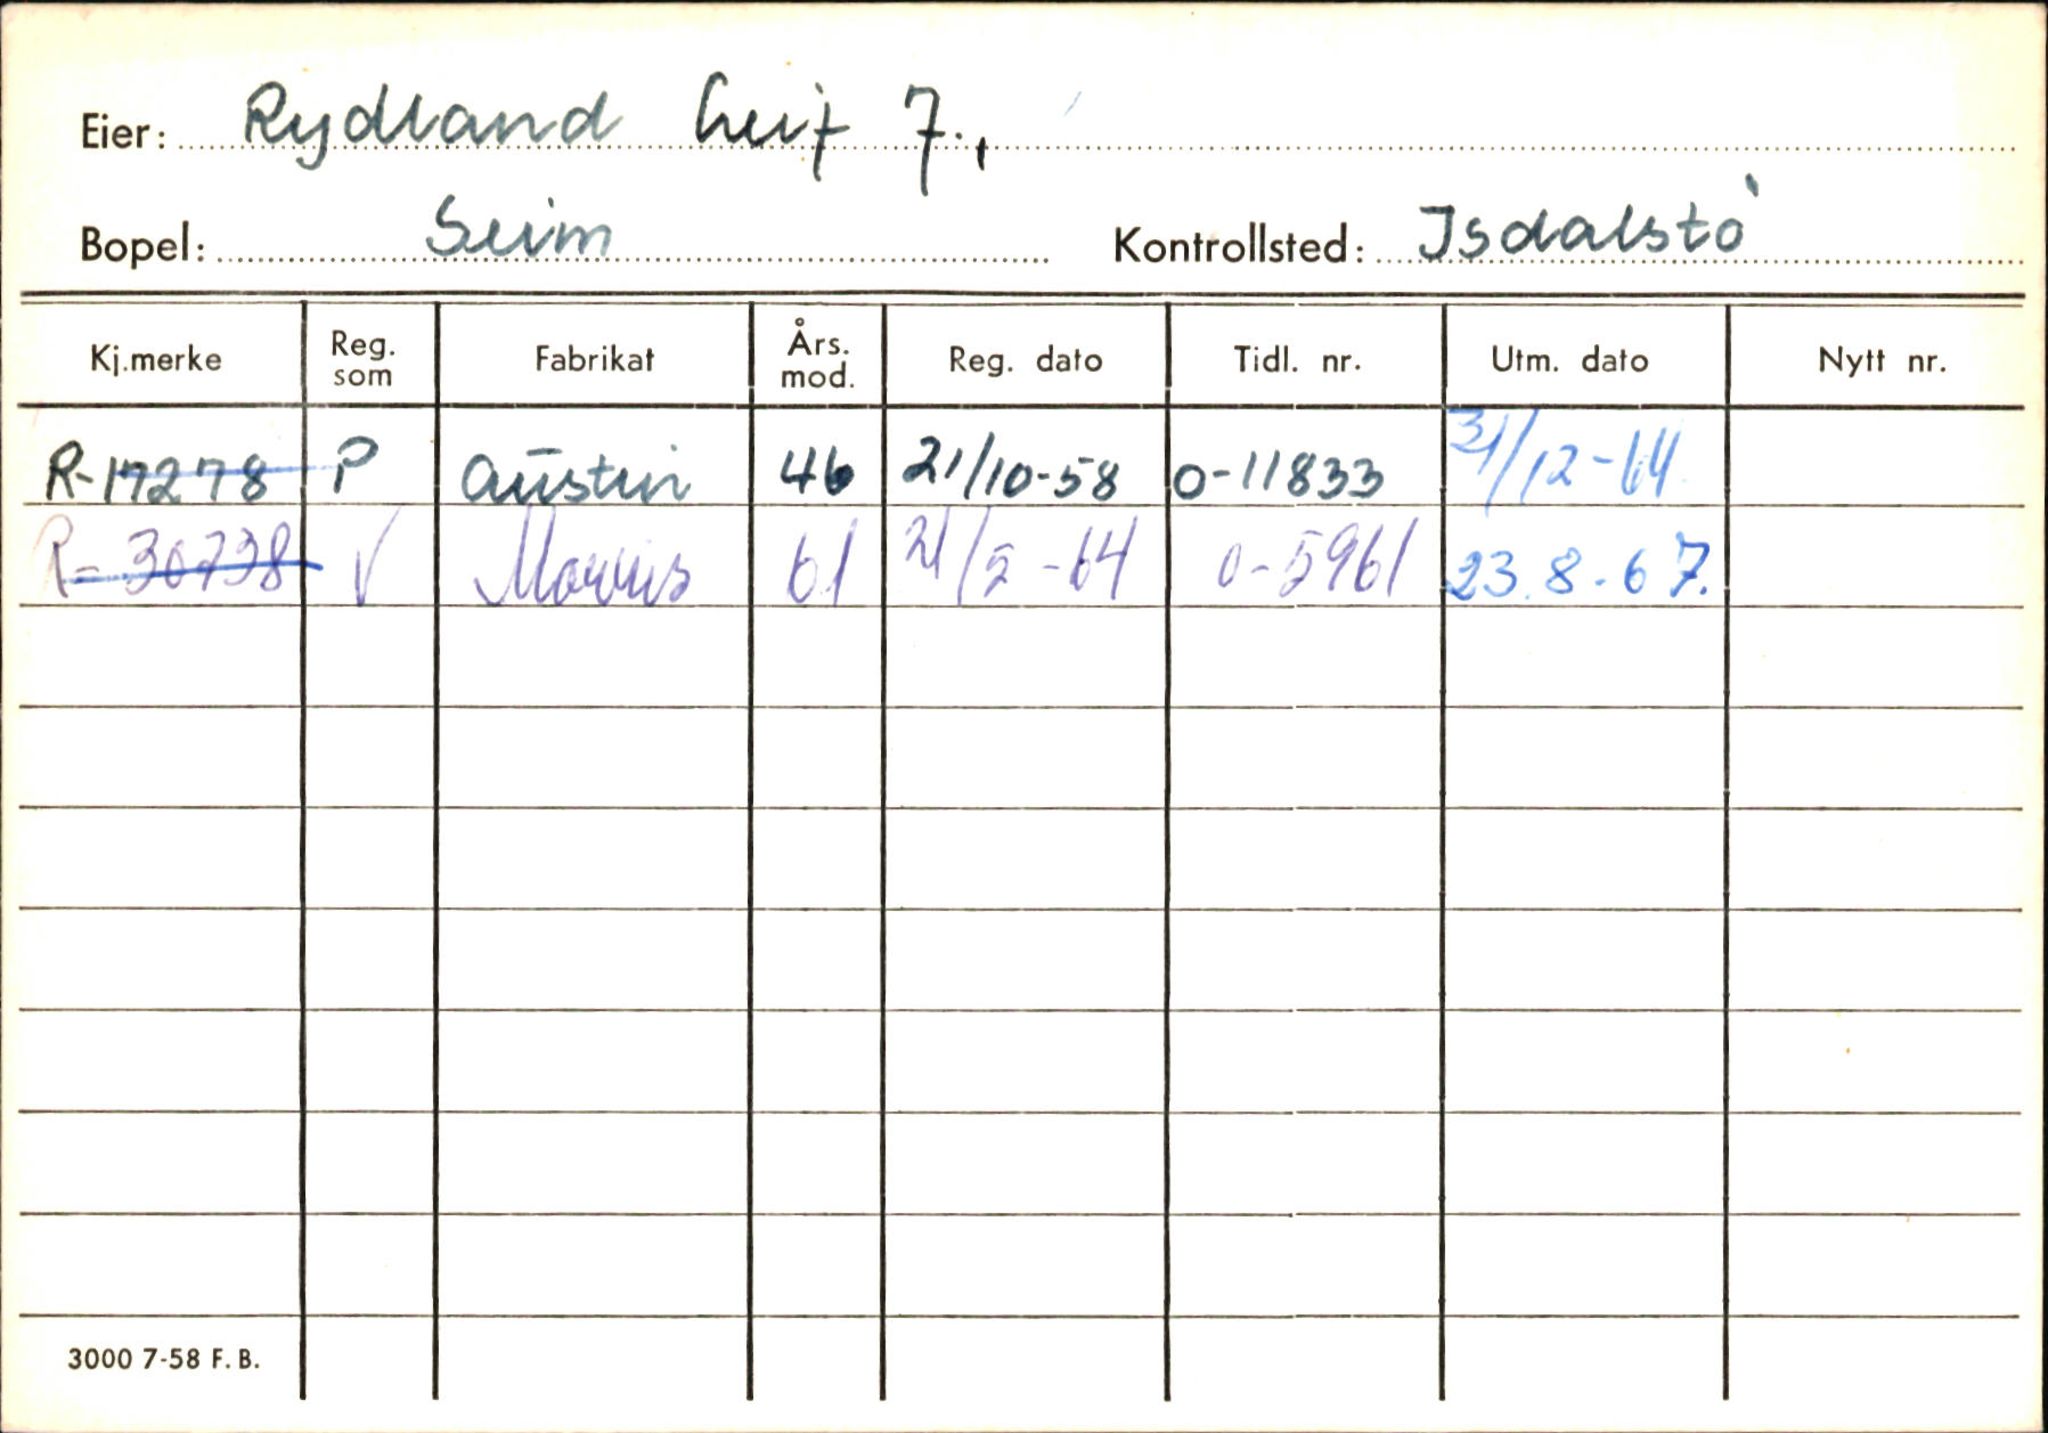 Eier: Rydland Leif J.,
Bopel: Seim Kontrollsted: Isdalstö
Kj.merke Reg. som Fabrikat Års. mod. Reg. dato Tidl. nr. Utm. dato Nytt nr.
R-17278 P Austin 46 21/10-58 O-11833 31/12-64
R-30738 V Morris 61 21/5-64 O-5961 23.8.67.
3000 7-58 F. B.